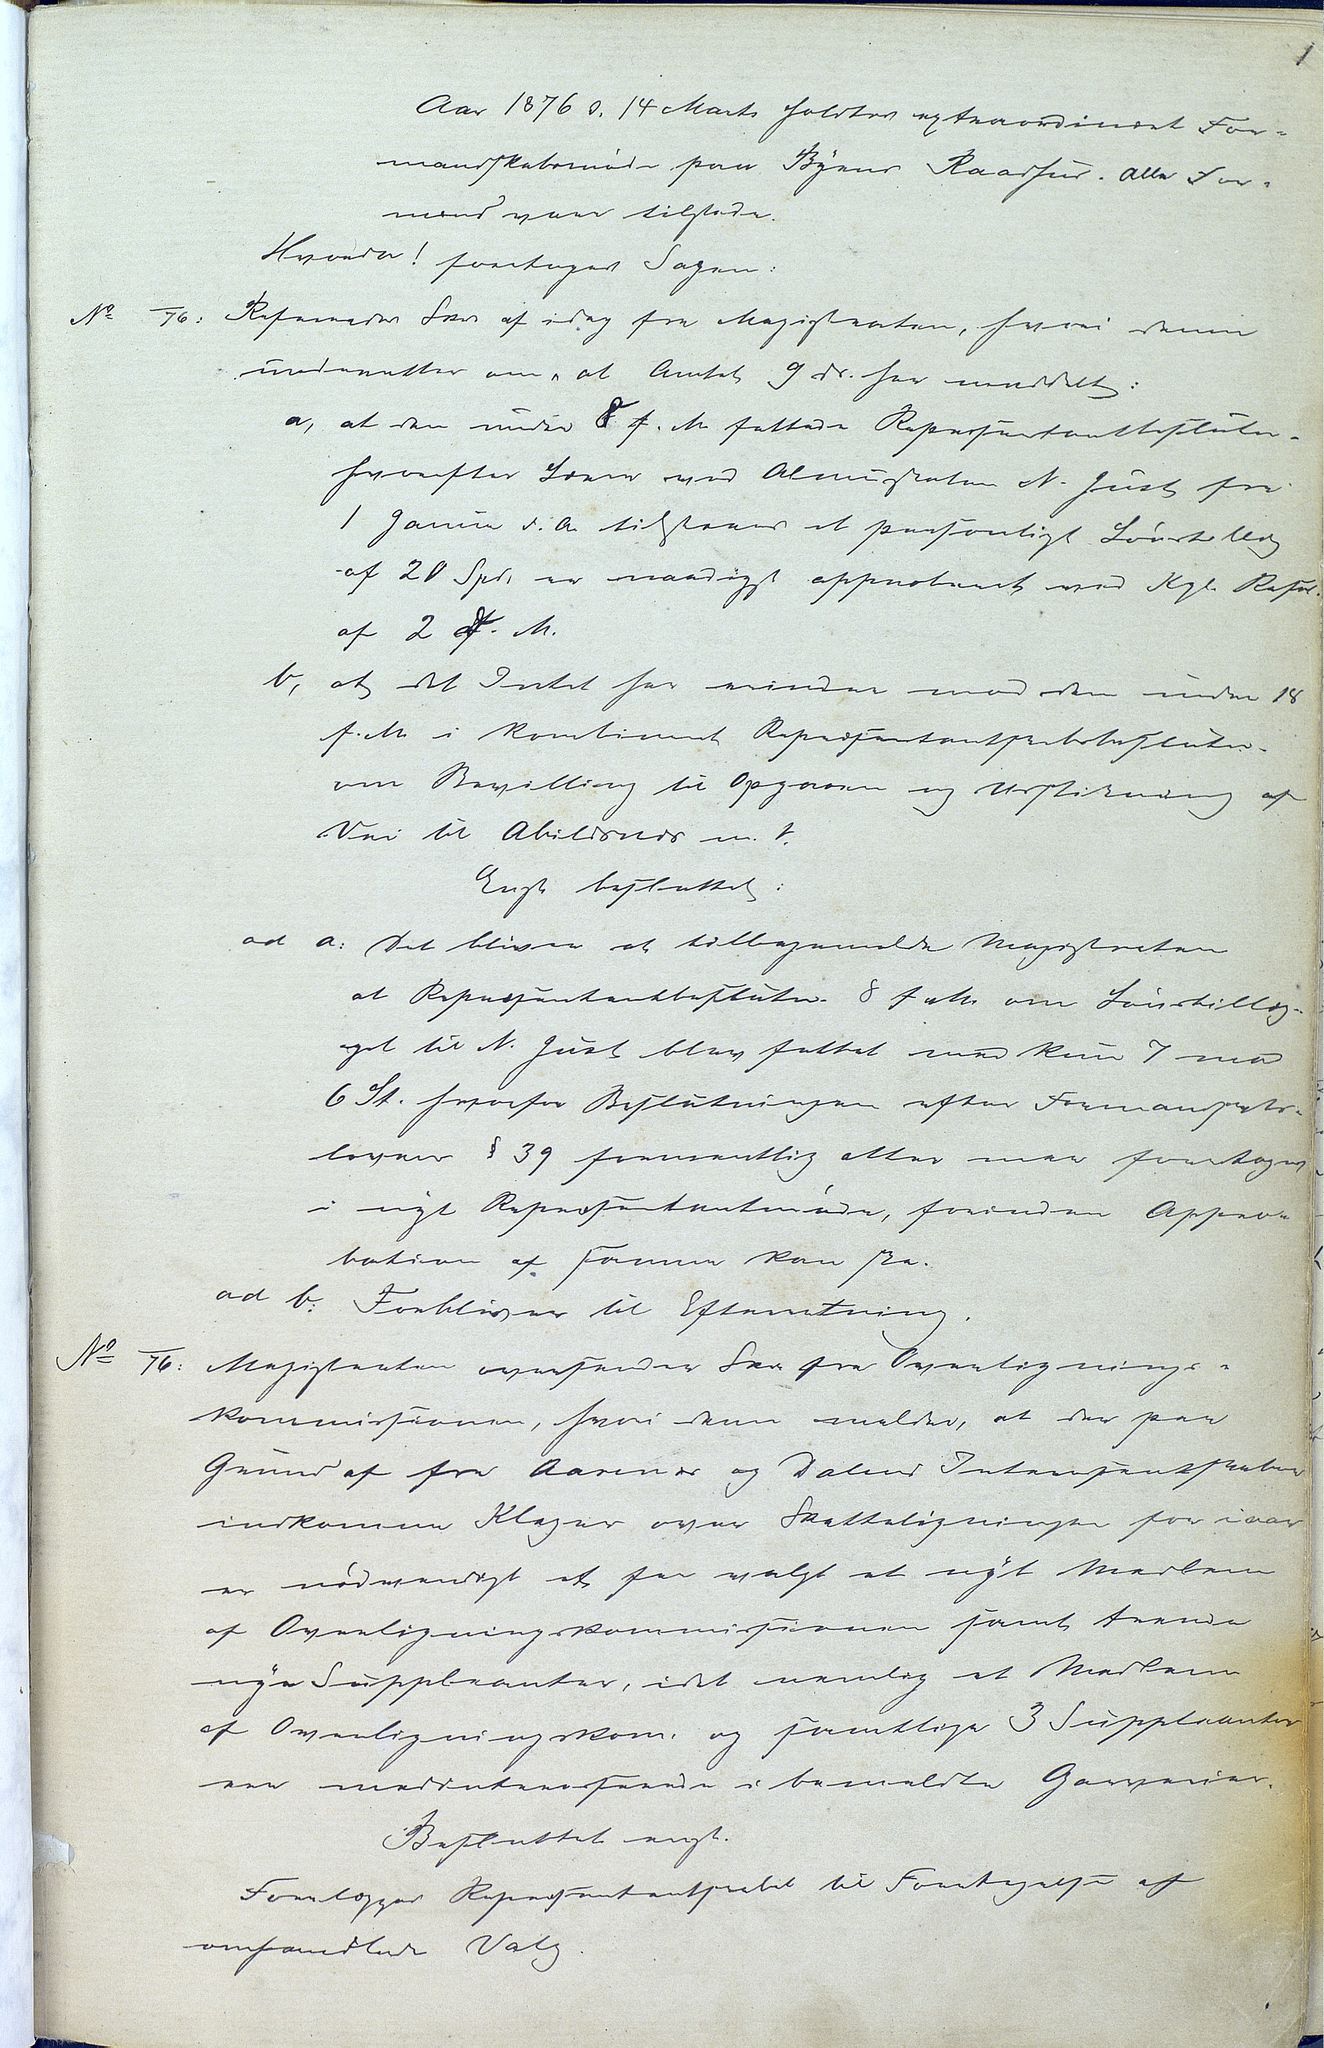 1
Aar 1876 d. 14 Marts holdtes extraordinært For-
mandskabsmøde paa Byens Raadhus. Alle For-
mænd vare tilstede.
Hvorda! foretoges Sagen:
No /76: Refereredes Skr. af idag fra Magistraten, hvori denne
underretter om, at Amtet 9 ds. har meddelt:
a, at den under 8 f. M. fattede Repræsentantbeslutn.
hvorefter Lærer ved Almueskolen N. Just fra
1 Janua d. A. tilstaaes et personligt Lönstillæg
af 20 Spd. er naadigst approberet ved Kgl. Resol.
af 2 d. M.
b, at det Intet har erindre mod den under 18
f. M. i kombineret Repræsentantskabsbeslutn.
om Bevilling til Opgaaen og Udstikning af
Vei til Abildsnes m. V.
Engt besluttet:
ad a: Det bliver at tilbagemelde Magistraten
at Repræsentantbeslutn. 8 f. M. om Lönstillæg-
get til N. Just blev fattet med kun 7 mod
6 St. hvorfor Beslutningen efter Formandskabs-
lovens § 39 formentlig atter maa foretages
i nyt Repræsentantmöde, forinden Appro-
bation af samme kan ske.
ad b: Forbliver til Efterretning.
No /76: Magistraten oversender Skr. fra Overlignings-
kommissionen, hvori denne melder, at der paa
Grund af fra Aarenes og Dalens Interessentskaber
indkomne Klager over Skatteligningen for iaar
er nödvendigt at faa valgt et nyt Medlem
af Overligningskommissionen samt trende
nye Suppleanter, idet nemlig et Medlem
af Overligningskom. og samtlige 3 Suppleanter
ere medinteresserede i bemeldte Garverier.
Besluttet engt.
Forelægges Repræsentantskabet til Foretagelse af
omhandlede Valg.